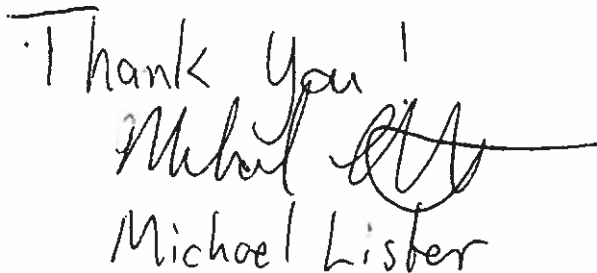 Thank You!
Michael
Michael Lister